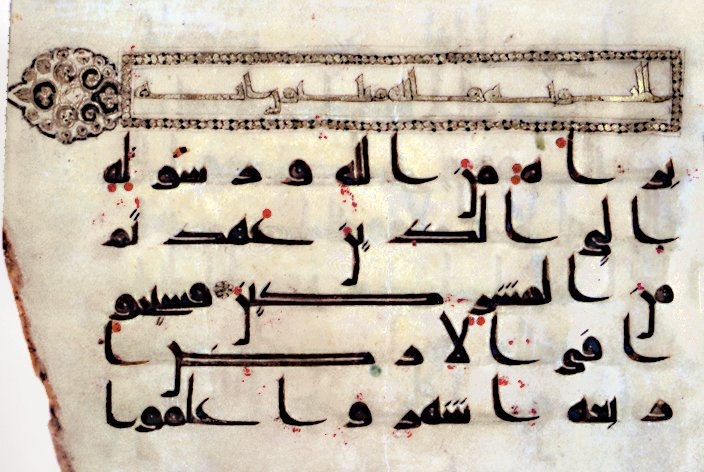 براة من الله ورسوله
الى الذين عهد تم
من المشركين فسيحو
ا فى الارض ا
ربعة اشهر واعلموا